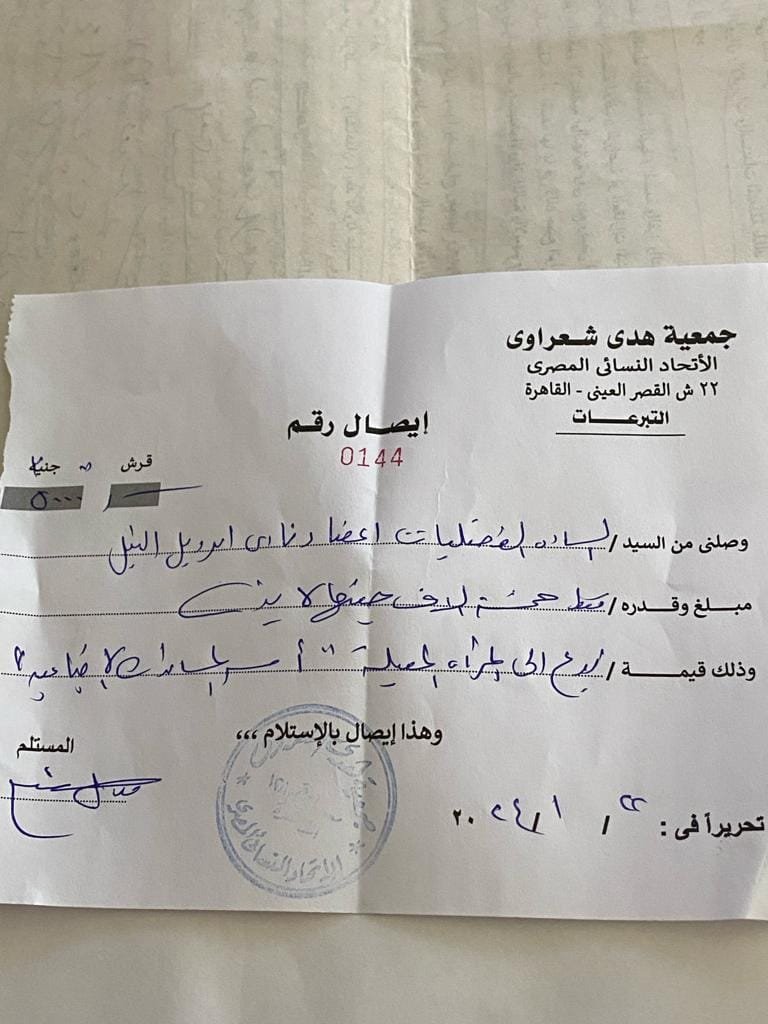 جمعية هدى شعراوى
الأتحاد النسائى المصرى
٢٢ ش القصر العينى - القاهرة
التبرعات
إيصال رقم
0144
قرش جنيه
٥٠٠٠
وصلنى من السيد / الساده الفضليات اعضاء نادى النيل
مبلغ وقدره / فقط خمسة الاف جنيها لا غير
وذلك قيمة / تبرع الى المرأه المعيلة
وهذا إيصال بالإستلام ،،،
المستلم
تحريراً فى : ٢٢ / ١ / ٢٠٢٤
الاتحاد النسائى المصرى